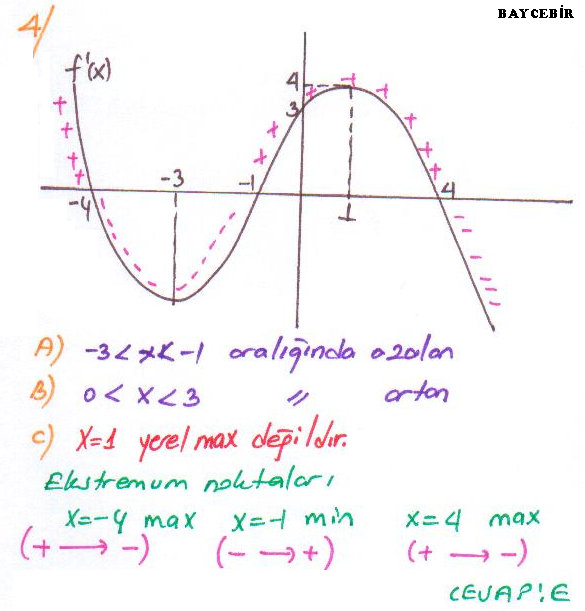 BAYCEBİR
4/
f'(x)
4
3
-3
-1
4
-4
1
A) -3<x<-1 aralığında azalan
B) 0<x<3 〃 artan
C) X=1 yerel max değildir.
Ekstremum noktaları
X=-4 max X=-1 min X=4 max
(+ → -) (- → +) (+ → -)
CEVAP:E